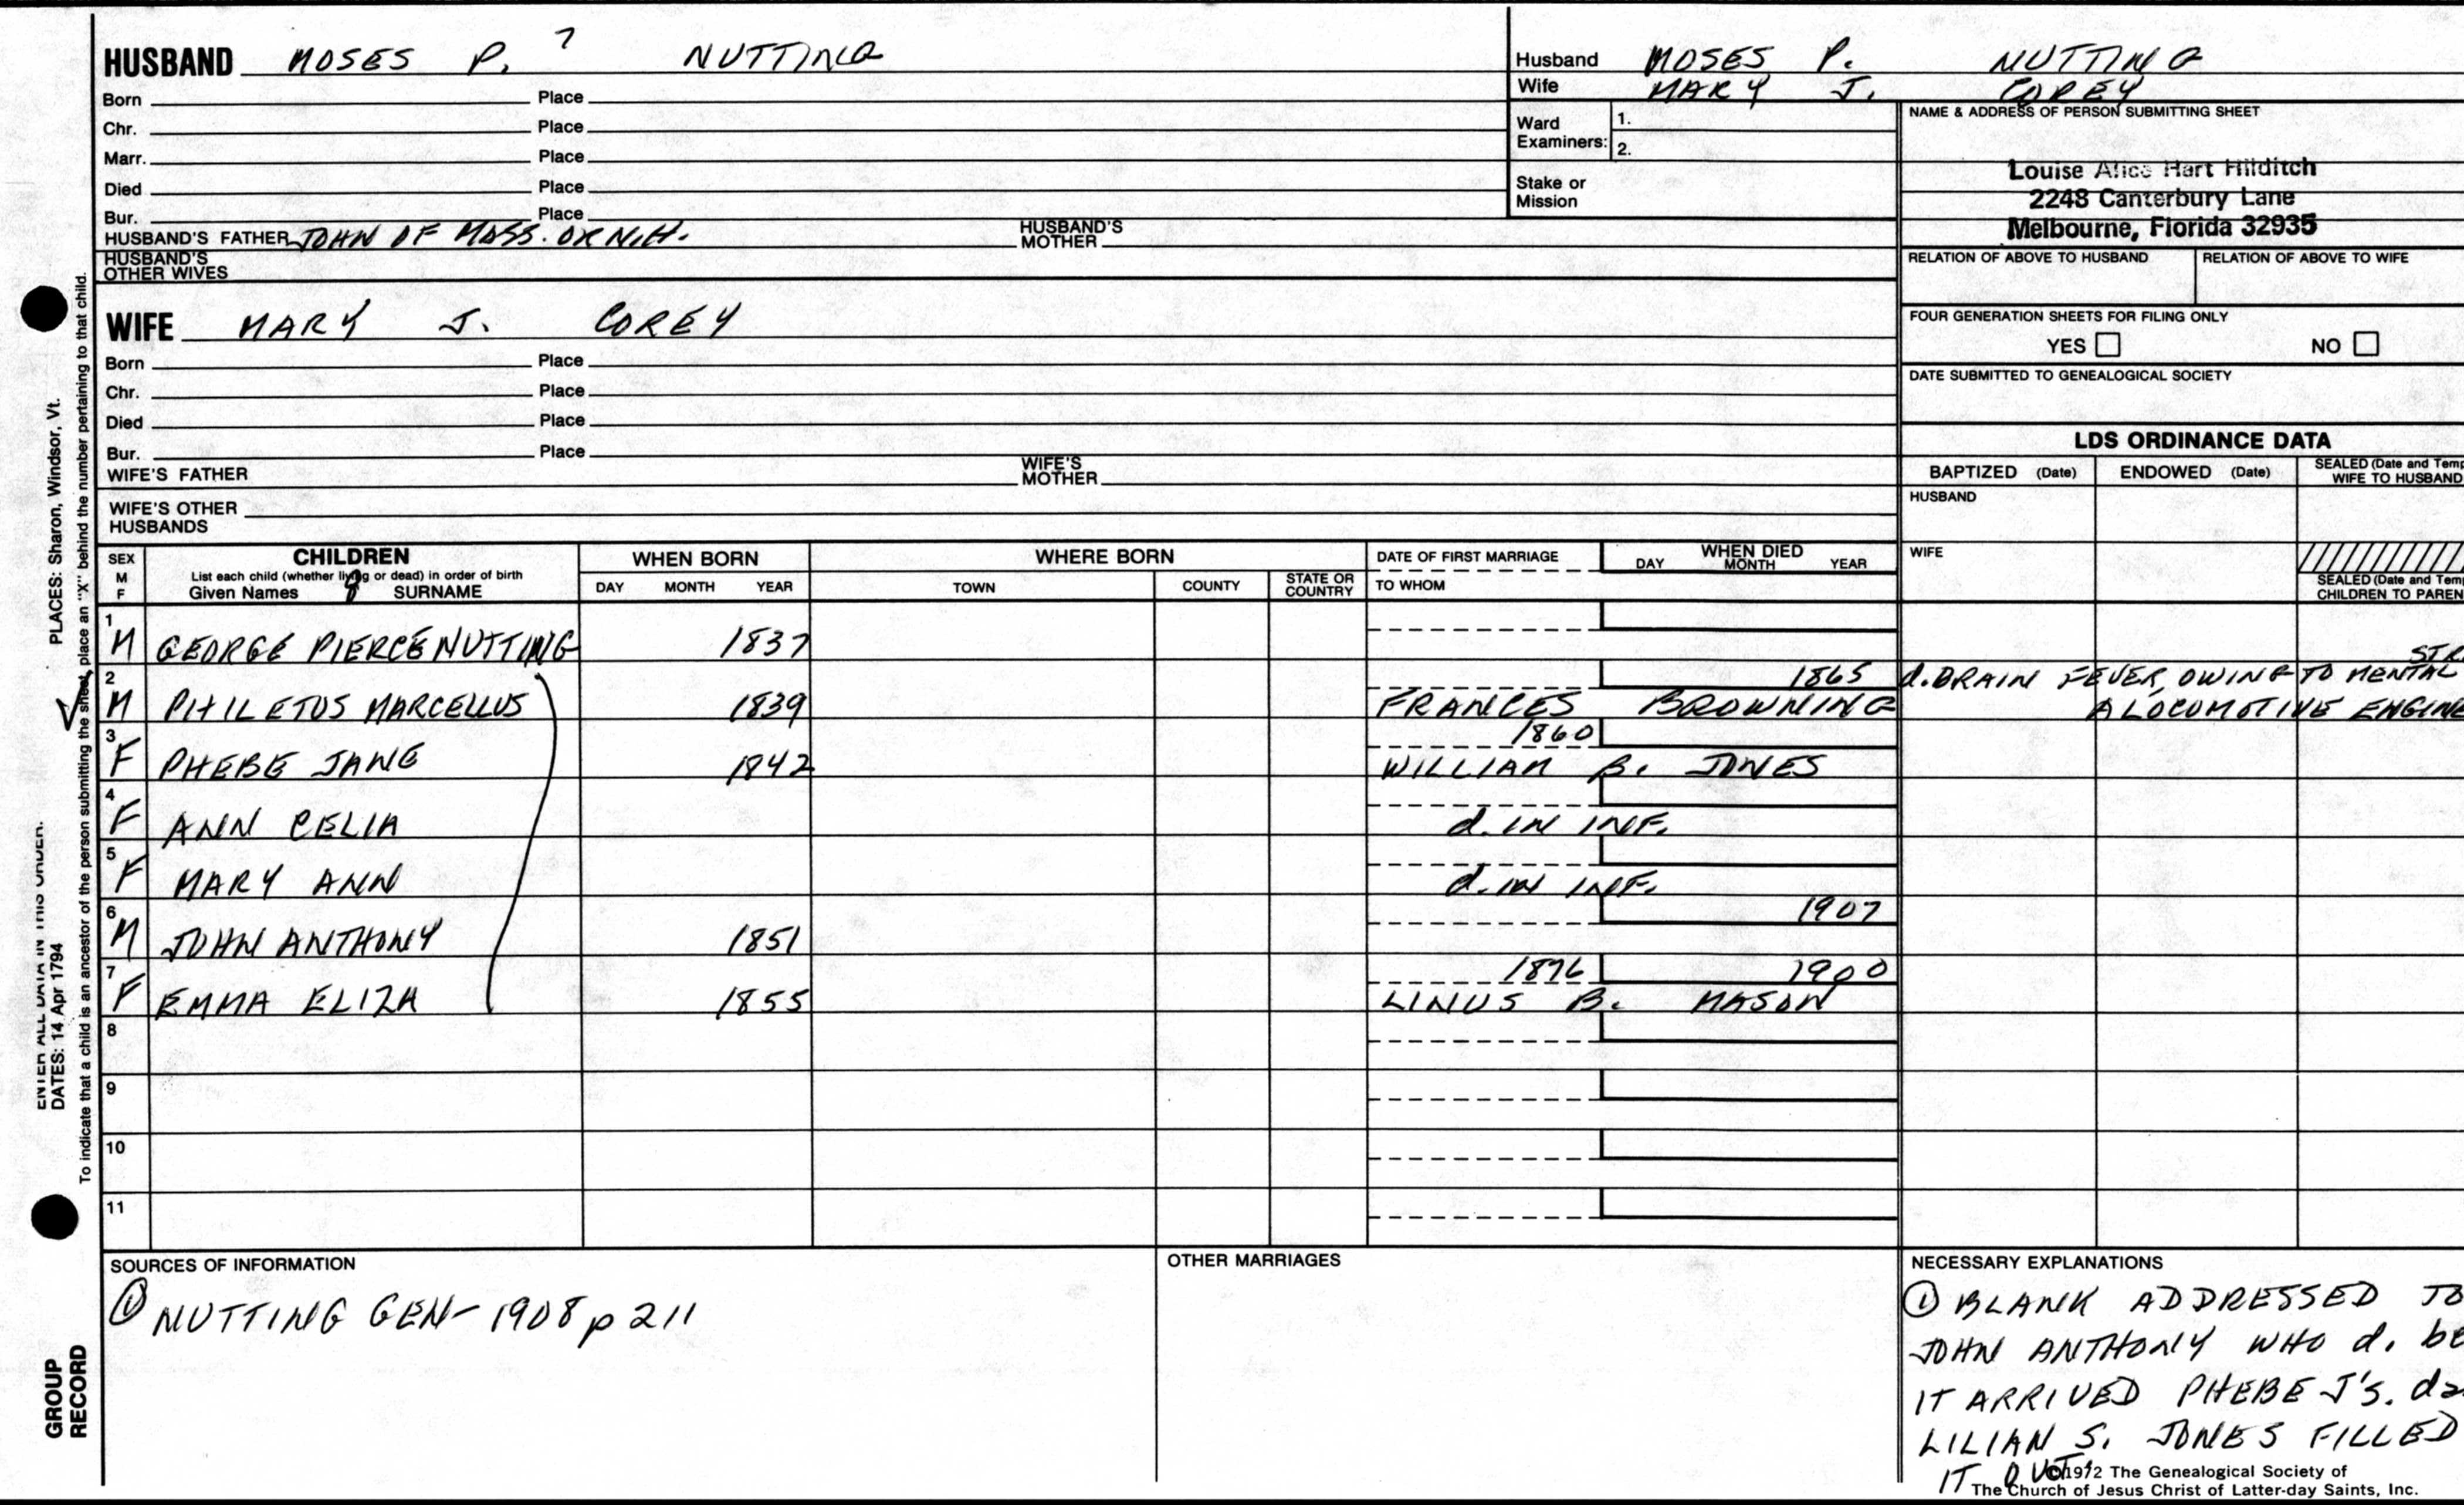 HUSBAND MOSES P. ? NUTTING
Born Place
Chr. Place
Marr. Place
Died Place
Bur. Place
HUSBAND'S FATHER JOHN OF MASS. OR N.H. HUSBAND'S MOTHER
HUSBAND'S OTHER WIVES
WIFE MARY J. COREY
Born Place
Chr. Place
Died Place
Bur. Place
WIFE'S FATHER WIFE'S MOTHER
WIFE'S OTHER HUSBANDS
Husband MOSES P. NUTTING
Wife MARY J. COREY
Ward Examiners: 1.
2.
Stake or Mission
NAME & ADDRESS OF PERSON SUBMITTING SHEET
Louise Alice Hart Hilditch
2248 Canterbury Lane
Melbourne, Florida 32935
RELATION OF ABOVE TO HUSBAND RELATION OF ABOVE TO WIFE
FOUR GENERATION SHEETS FOR FILING ONLY
YES NO
DATE SUBMITTED TO GENEALOGICAL SOCIETY
LDS ORDINANCE DATA
BAPTIZED (Date) ENDOWED (Date) SEALED (Date and Temp
WIFE TO HUSBAND
HUSBAND
WIFE
SEALED (Date and Temp
CHILDREN TO PAREN
SEX M F CHILDREN WHEN BORN WHERE BORN DATE OF FIRST MARRIAGE WHEN DIED
List each child (whether living or dead) in order of birth
Given Names SURNAME DAY MONTH YEAR TOWN COUNTY STATE OR COUNTRY TO WHOM DAY MONTH YEAR
1 M GEORGE PIERCE NUTTING 1837
2 M PHILETUS MARCELLUS 1839 FRANCES BROWNING 1865 d. BRAIN FEVER, OWING TO MENTAL STR
A LOCOMOTIVE ENGINE
3 F PHEBE JANE 1842 1860 WILLIAM B. JONES
4 F ANN CELIA d. IN INF.
5 F MARY ANN d. IN INF.
6 M JOHN ANTHONY 1851 1907
7 F EMMA ELIZA 1855 1876 LINUS B. MASON 1900
8
9
10
11
SOURCES OF INFORMATION
① NUTTING GEN- 1908 p 211
OTHER MARRIAGES
NECESSARY EXPLANATIONS
① BLANK ADDRESSED TO
JOHN ANTHONY WHO d. be
IT ARRIVED PHEBE J'S. da
LILIAN S. JONES FILLED
IT OUT.
©1972 The Genealogical Society of
The Church of Jesus Christ of Latter-day Saints, Inc.
ENTER ALL DATA IN THIS ORDER.
DATES: 14 Apr 1794 PLACES: Sharon, Windsor, Vt.
To indicate that a child is an ancestor of the person submitting the sheet, place an "X" behind the number pertaining to that child.
GROUP
RECORD